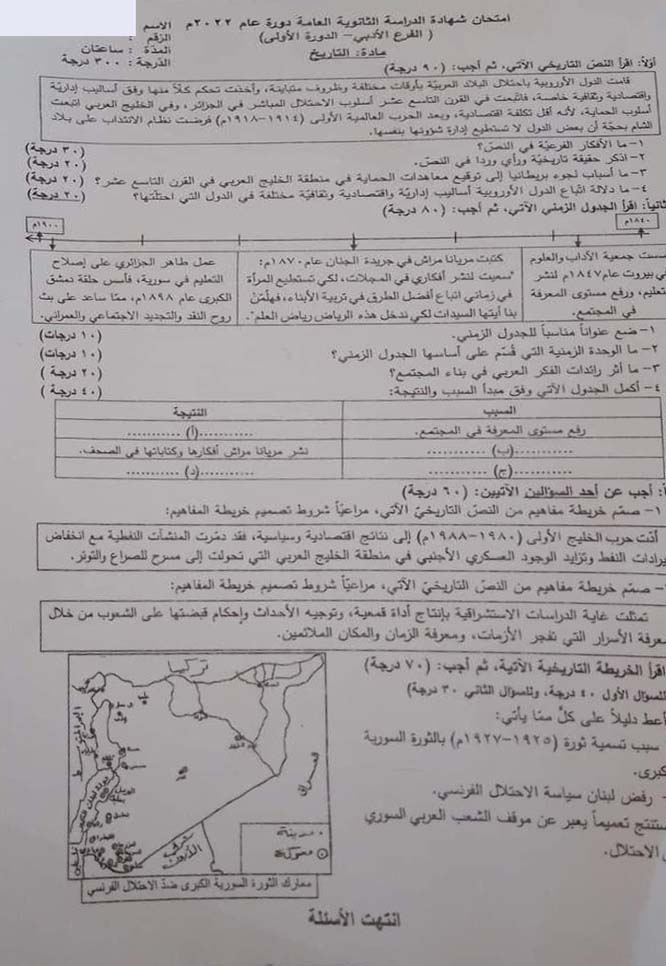 امتحان شهادة الدراسة الثانوية العامة دورة عام ٢٠٢٢م
الاسم :
( الفرع الأدبي – الدورة الأولى)
الرقم :
مادة: التاريخ
المدة : ساعتان
الدرجة : ٣٠٠ درجة
أولاً: اقرأ النص التاريخي الآتي، ثم أجب: (٩٠ درجة)
قامت الدول الأوروبية باحتلال البلاد العربية بأوقات مختلفة وظروف متباينة، وأخذت تحكم كلاً منها وفق أساليب إدارية
واقتصادية وثقافية خاصة، فاتبعت في القرن التاسع عشر أسلوب الاحتلال المباشر في الجزائر، وفي الخليج العربي اتبعت
أسلوب الحماية، لأنه أقل تكلفة اقتصادية، وبعد الحرب العالمية الأولى (١٩١٤–١٩١٨م) فرضت نظام الانتداب على بلاد
الشام بحجة أن بعض الدول لا تستطيع إدارة شؤونها بنفسها.
١– ما الأفكار الفرعية في النص؟ (٣٠ درجة)
٢– اذكر حقيقة تاريخية ورأي وردا في النص. (٢٠ درجة)
٣– ما أسباب لجوء بريطانيا إلى توقيع معاهدات الحماية في منطقة الخليج العربي في القرن التاسع عشر؟ (٢٠ درجة)
٤– ما دلالة اتباع الدول الأوروبية أساليب إدارية واقتصادية وثقافية مختلفة في الدول التي احتلتها؟ (٢٠ درجة)
ثانياً: اقرأ الجدول الزمني الآتي، ثم أجب: (٨٠ درجة)
١٨٤٠م
١٩٠٠م
سست جمعية الآداب والعلوم
في بيروت عام ١٨٤٧م لنشر
تعليم، ورفع مستوى المعرفة
في المجتمع.
كتبت مريانا مراش في جريدة الجنان عام ١٨٧٠م:
"سعيت لنشر أفكاري في المجلات، لكي تستطيع المرأة
في زماني اتباع أفضل الطرق في تربية الأبناء، فهلّمن
بنا أيتها السيدات لكي ندخل هذه الرياض رياض العلم".
عمل طاهر الجزائري على إصلاح
التعليم في سورية، فأسس حلقة دمشق
الكبرى عام ١٨٩٨م، مما ساعد على بث
روح النقد والتجديد الاجتماعي والعمراني.
١– ضع عنواناً مناسباً للجدول الزمني. (١٠ درجات)
٢– ما الوحدة الزمنية التي قُسّم على أساسها الجدول الزمني؟ (١٠ درجات)
٣– ما أثر رائدات الفكر العربي في بناء المجتمع؟ (٢٠ درجة)
٤– أكمل الجدول الآتي وفق مبدأ السبب والنتيجة: (٤٠ درجة)
السبب النتيجة
رفع مستوى المعرفة في المجتمع. ..........(أ)..........
..........(ب).......... نشر مريانا مراش أفكارها وكتاباتها في الصحف.
..........(ج).......... ..........(د)..........
: أجب عن أحد السؤالين الآتيين: (٦٠ درجة)
١– صمّم خريطة مفاهيم من النصّ التاريخيّ الآتي، مراعياً شروط تصميم خريطة المفاهيم:
أدّت حرب الخليج الأولى (١٩٨٠–١٩٨٨م) إلى نتائج اقتصادية وسياسية، فقد دمّرت المنشآت النفطية مع انخفاض
يرادات النفط وتزايد الوجود العسكري الأجنبي في منطقة الخليج العربي التي تحولت إلى مسرح للصراع والتوتر.
– صمّم خريطة مفاهيم من النصّ التاريخيّ الآتي، مراعياً شروط تصميم خريطة المفاهيم:
تمثلت غاية الدراسات الاستشراقية بإنتاج أداة قمعية، وتوجيه الأحداث وإحكام قبضتها على الشعوب من خلال
معرفة الأسرار التي تفجر الأزمات، ومعرفة الزمان والمكان الملائمين.
اقرأ الخريطة التاريخية الآتية، ثم أجب: (٧٠ درجة)
للسؤال الأول ٤٠ درجة، وللسؤال الثاني ٣٠ درجة)
أعط دليلاً على كلّ ممّا يأتي:
سبب تسمية ثورة (١٩٢٥–١٩٢٧م) بالثورة السورية
كبرى.
– رفض لبنان سياسة الاحتلال الفرنسي.
ستنتج تعميماً يعبر عن موقف الشعب العربي السوري
الاحتلال.
تركيا
شرق
الأردن
مدينة
معركة
معارك الثورة السورية الكبرى ضدّ الاحتلال الفرنسي
انتهت الأسئلة